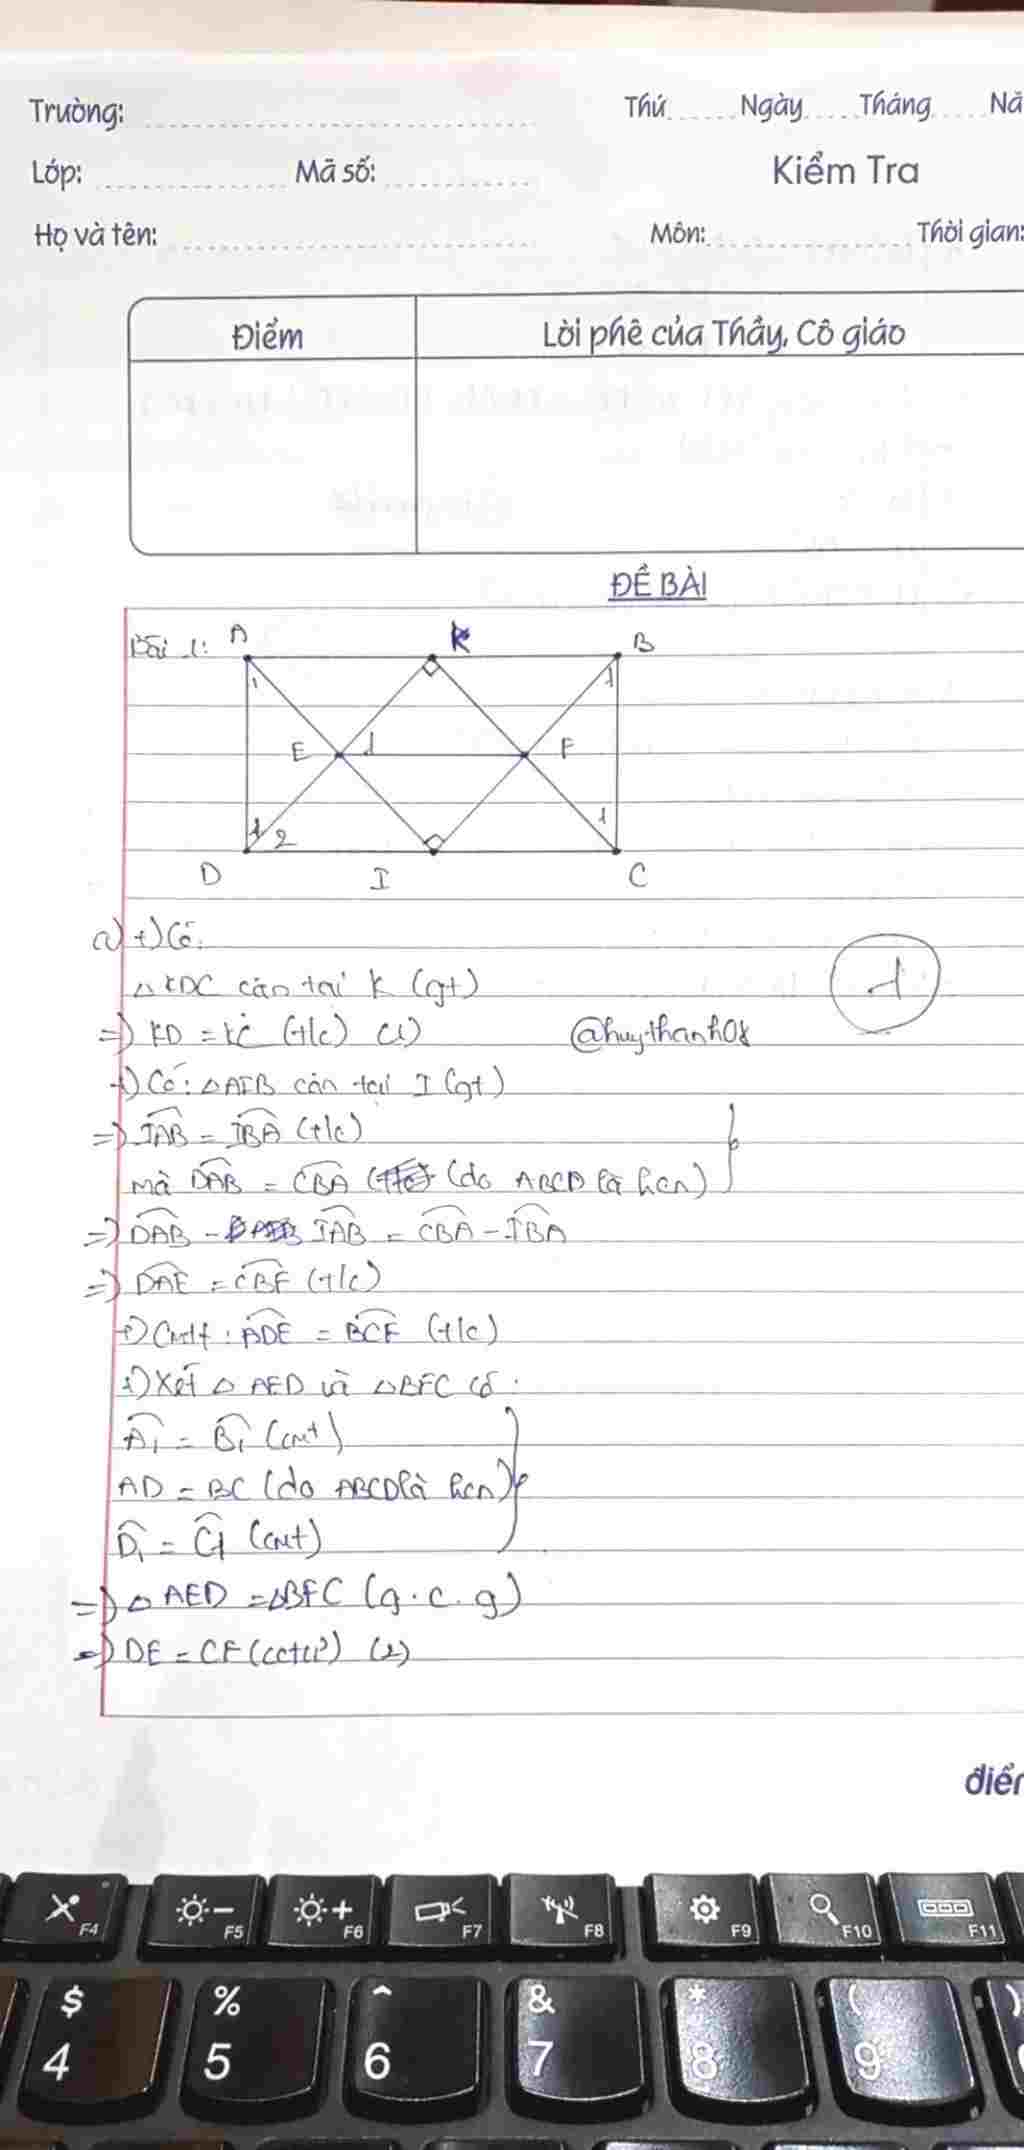 Trường: Thứ Ngày Tháng Nă
Lớp: Mã số: Kiểm Tra
Họ và tên: Môn: Thời gian:
Điểm Lời phê của Thầy, Cô giáo
ĐỀ BÀI
Bài 1: A K B
E 1 F
1 2 1
D I C
a) +) Có:
△KDC cân tại K (gt)
=) KD = KC (t/c) (1)
@huythanh08
1
+) Có: △AIB cân tại I (gt)
=) IAB = IBA (t/c)
mà DAB = CBA (do ABCD là hcn)
=) DAB - IAB = CBA - IBA
=) DAE = CBF (t/c)
+) Cmtt: ADE = BCF (t/c)
+) Xét △AED và △BFC có:
A1 = B1 (cmt)
AD = BC (do ABCD là hcn)
D1 = C1 (cmt)
=) △AED = △BFC (g.c.g)
=) DE = CF (cctứ) (2)
điể
F4 F5 F6 F7 F8 F9 F10 F11
$ % ^ & * ( )
4 5 6 7 8 9